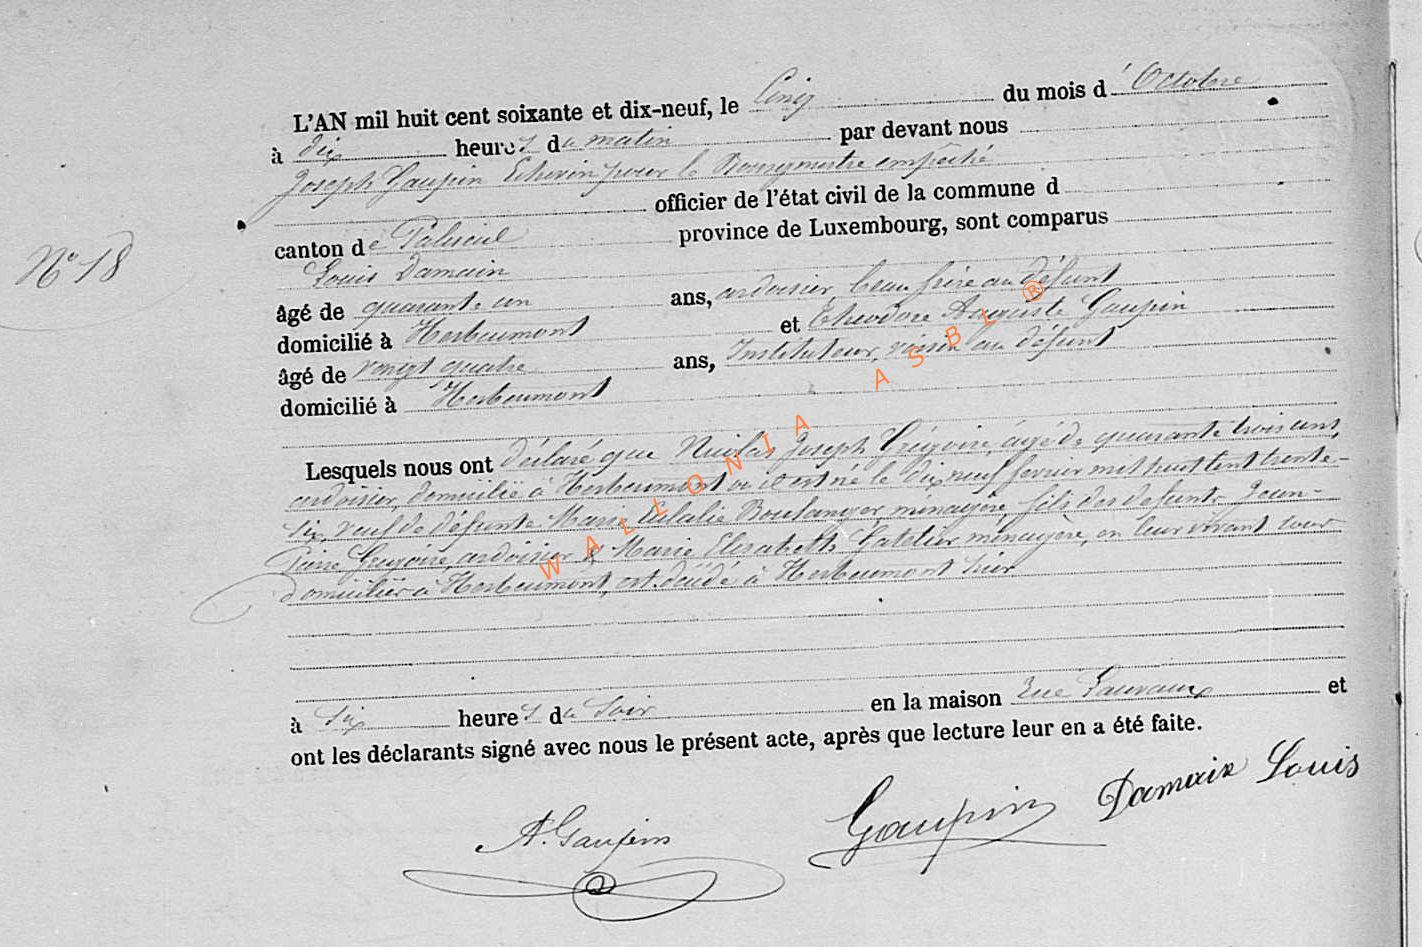 N° 18
L'AN mil huit cent soixante et dix-neuf, le Cinq du mois d'Octobre
à dix heures du matin par devant nous
Joseph Gaupin Echevin pour le Bourgmestre empêché
officier de l'état civil de la commune d
canton de Paliseul province de Luxembourg, sont comparus
Louis Damain
âgé de quarante un ans, ardoisier, beau frère au défunt
domicilié à Herbeumont et Théodore Auguste Gaupin
âgé de vingt quatre ans, Instituteur, voisin au défunt
domicilié à Herbeumont
Lesquels nous ont déclaré que Nicolas Joseph Grégoire, âgé de quarante trois ans,
ardoisier, domicilié à Herbeumont où il est né le dix neuf février mil huit cent trente-
six, veuf de défunte Marie Eulalie Boulanger, ménagère, fils des défunts Jean-
Pierre Grégoire, ardoisier & Marie Elisabeth Gatelier ménagère, en leur vivant tous
domiciliés à Herbeumont, est décédé à Herbeumont hier
à six heures du soir en la maison Rue Gauvaux et
ont les déclarants signé avec nous le présent acte, après que lecture leur en a été faite.
A. Gaupin Gaupin Damain Louis
WALLONIA ASBL ®